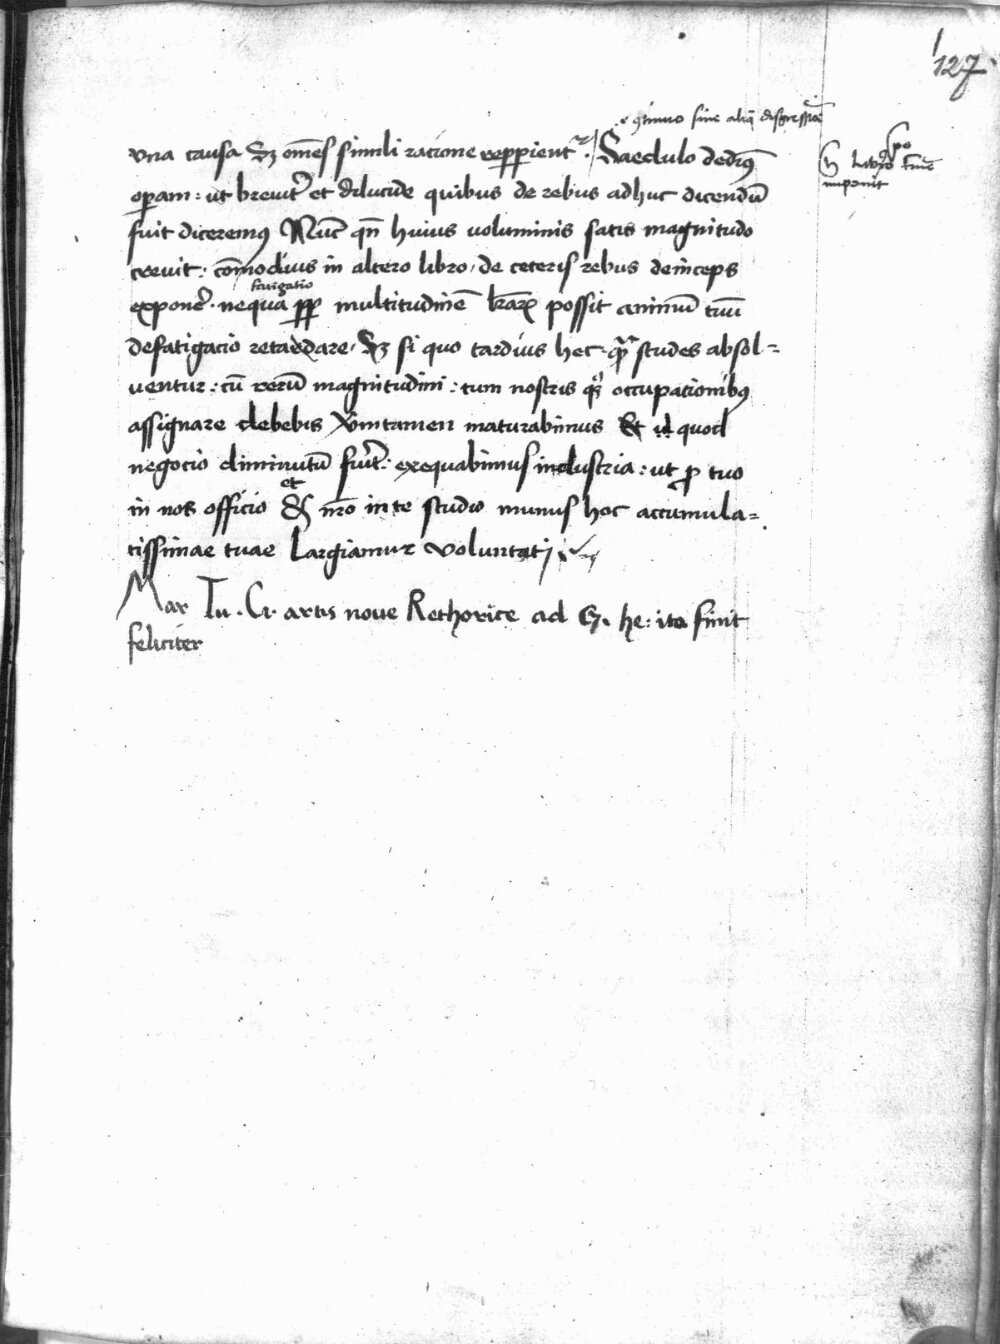 127.
.i. continuo sine aliqua disgressione
una causa Sꝫ om̄es simili racione repperient᷑ / Saedulo dedimꝰ
Hic libro primo
finem imponit
oꝑam : ut breuit᷑ et dilucide quibus de rebus adhuc dicendū
fuit diceremꝰ Nūc qn̄ huius voluminis satis magnitudo
creuit : com̄odius in altero libro , de ceteris rebus deinceps
exponem᷑ . ne qua ꝓpt᷑ multitudinē lr̄aꝝ possit animū tuū
fatigatio
defatigacio retardare , Sꝫ si quo tardius hec , q̄ꝫ studes absol=
ventur : cū rerū magnitudini : tum nostris qꝫ occupationibꝰ
assignare debebis verūtamen maturabimus Et id quod
negocio diminutū fuit᷑ : exequabimus industria : ut ꝓ tuo
et
in nos officio & nr̄o in te studio munus hoc accumula=
tissimae tuae largiamur voluntati .
Mar Tu . Ci . artis noue Rethorice ad G . he : ita finit
feliciter